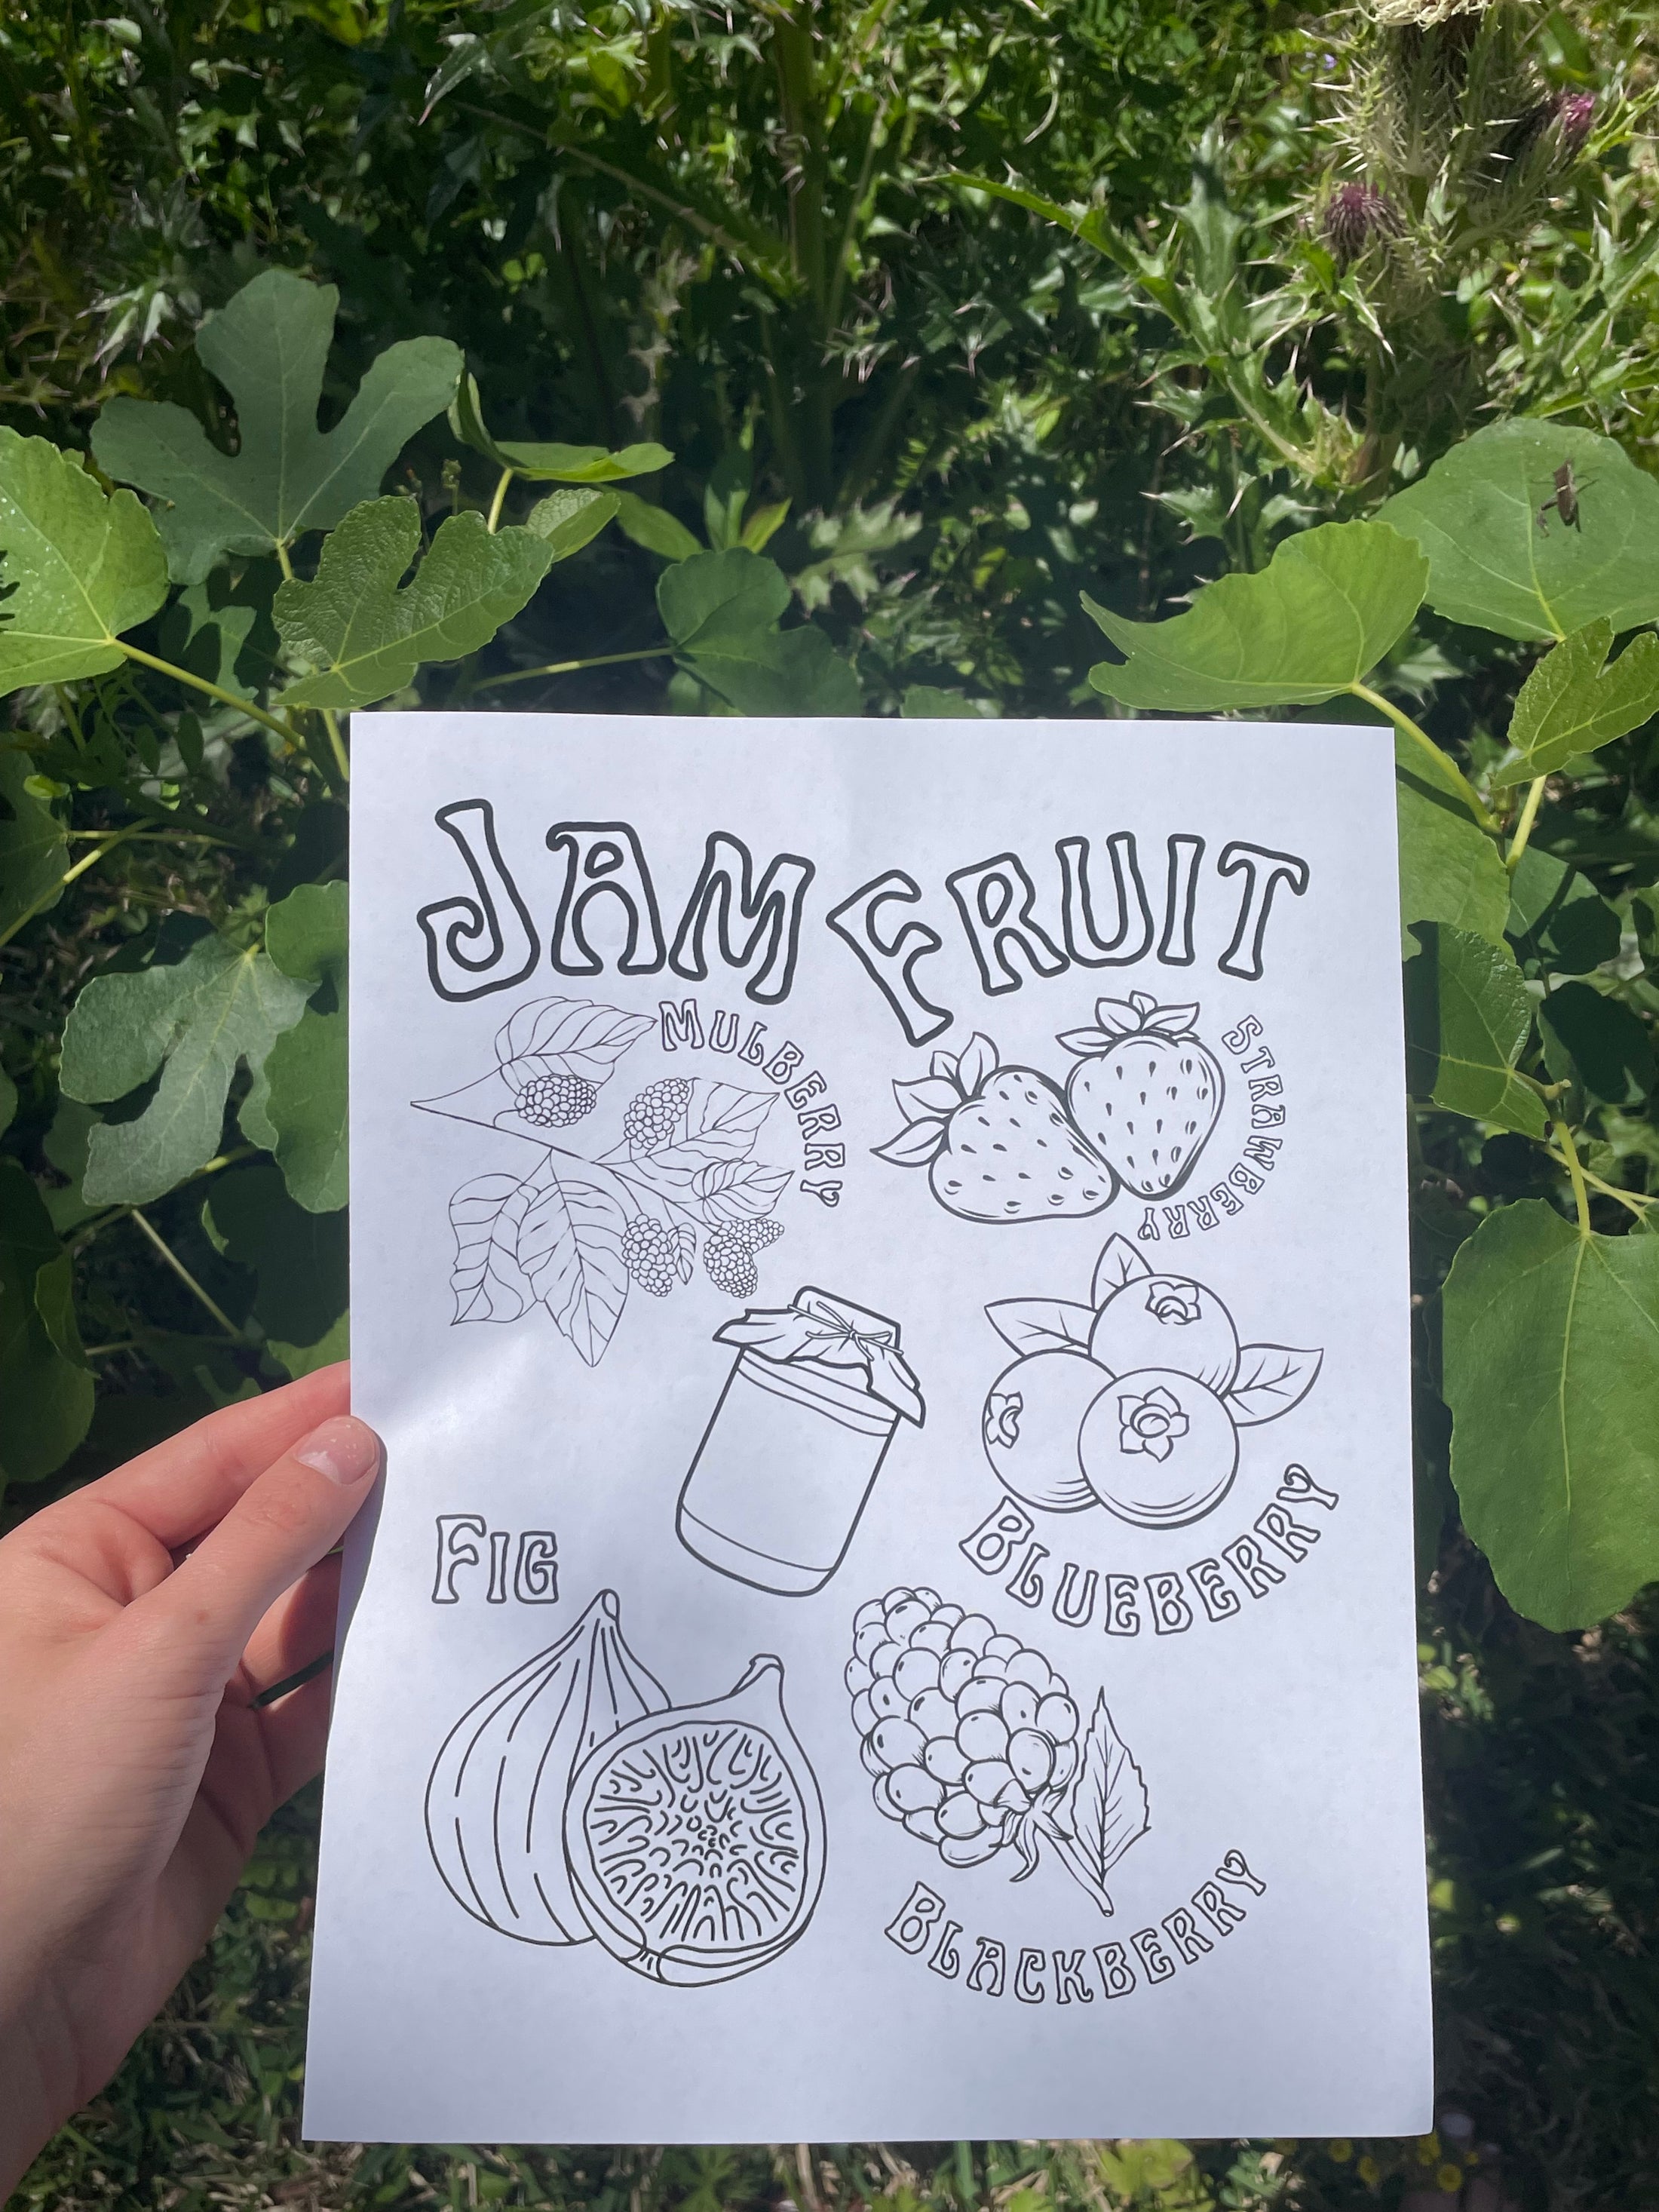 JAM FRUIT
MULBERRY
STRAWBERRY
BLUEBERRY
FIG
BLACKBERRY